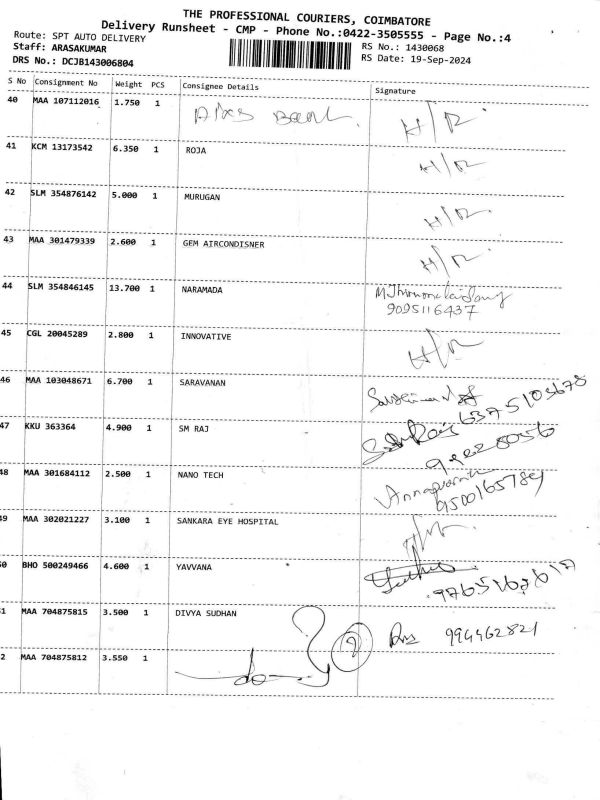 THE PROFESSIONAL COURIERS, COIMBATORE
Delivery Runsheet - CMP - Phone No.:0422-3505555 - Page No.:4
Route: SPT AUTO DELIVERY
RS No.: 1430068
Staff: ARASAKUMAR
RS Date: 19-Sep-2024
DRS No.: DCJB143006804
S No Consignment No Weight PCS Consignee Details Signature
40 MAA 107112016 1.750 1 H/R
41 KCM 13173542 6.350 1 ROJA H/R
42 SLM 354876142 5.000 1 MURUGAN H/R.
43 MAA 301479339 2.600 1 GEM AIRCONDISNER H/R
44 SLM 354846145 13.700 1 NARAMADA
9095116437
45 CGL 20045289 2.800 1 INNOVATIVE H/R
46 MAA 103048671 6.700 1 SARAVANAN
47 KKU 363364 4.900 1 SM RAJ
48 MAA 301684112 2.500 1 NANO TECH
49 MAA 302021227 3.100 1 SANKARA EYE HOSPITAL
50 BHO 500249466 4.600 1 YAVVANA
1 MAA 704875815 3.500 1 DIVYA SUDHAN
2 MAA 704875812 3.550 1 do